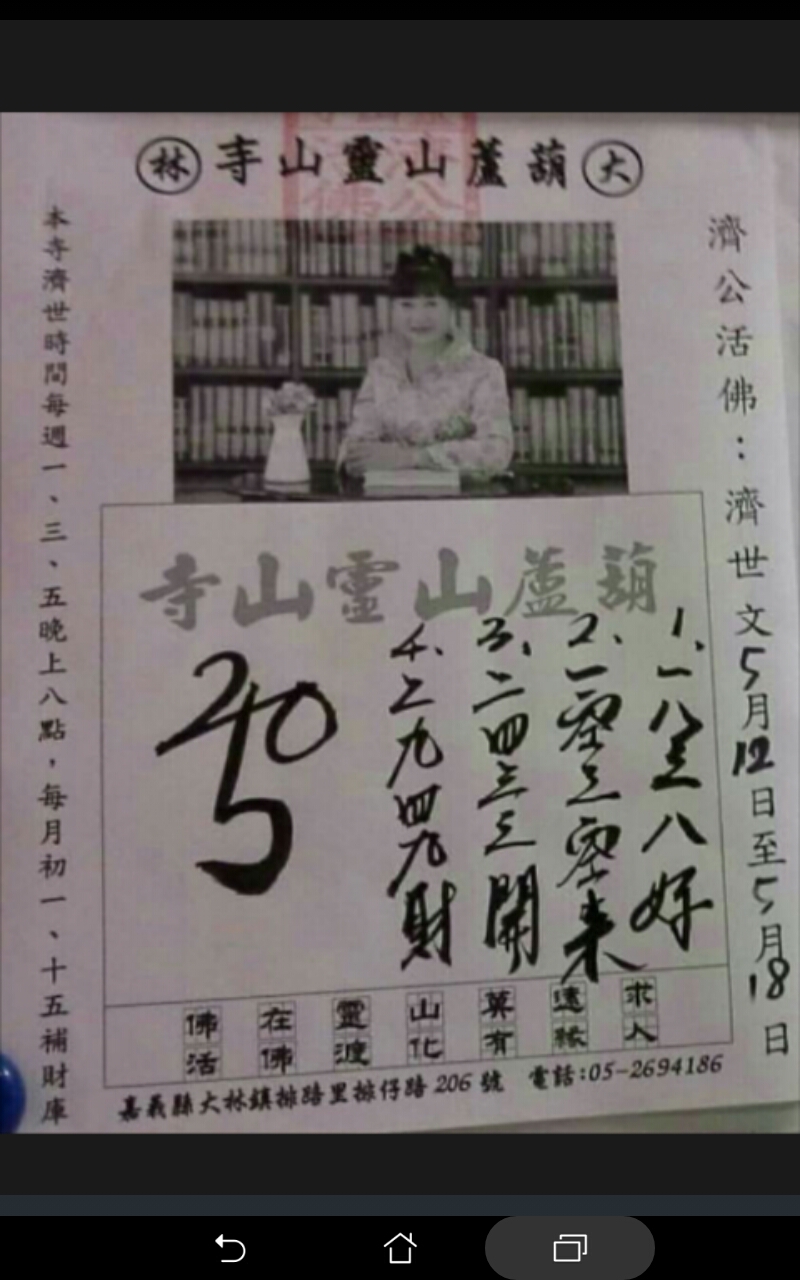 大葫蘆山靈山寺林
濟公活佛：濟世文5月12日至5月18日
葫蘆山靈山寺
1、一八三八好
2、一零三零來
3、二四三三開
4、二九四九財
求人
遠
莫有
山化
靈渡
在佛
佛活
本寺濟世時間每週一、三、五晚上八點，每月初一、十五補財庫
嘉義縣大林鎮排路里排仔路206號 電話:05-2694186